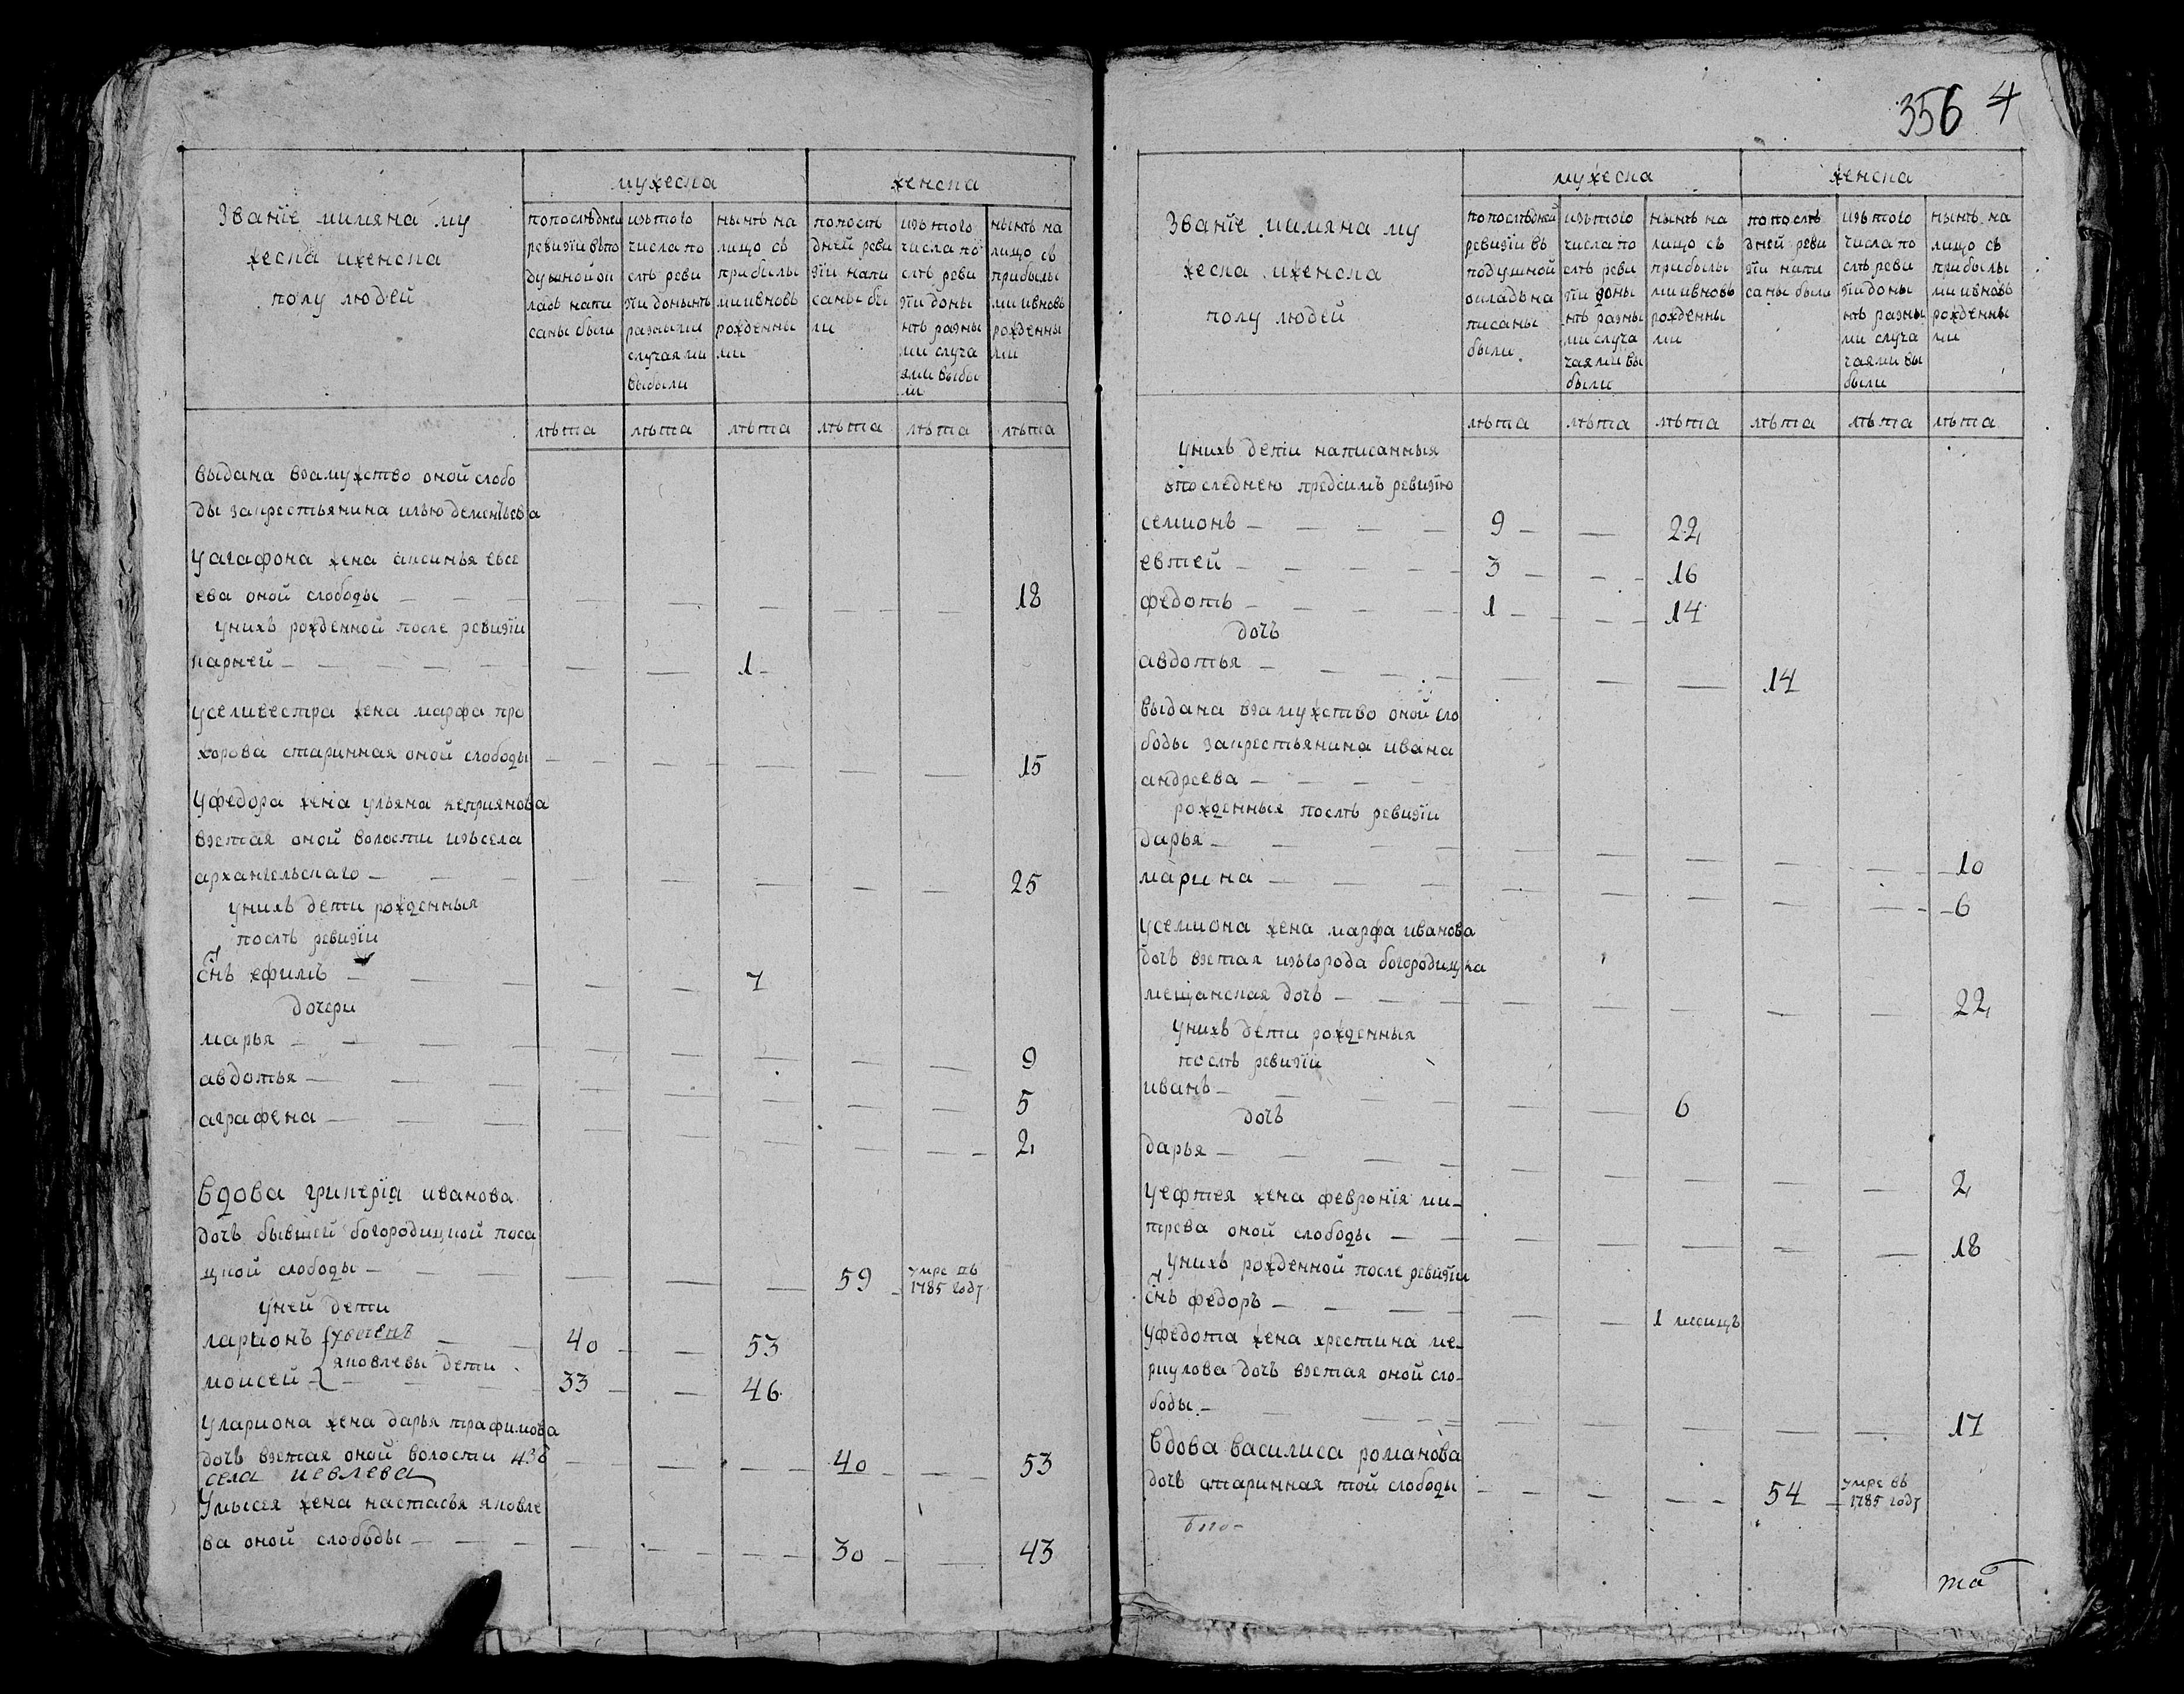 356 4
мужеска женска
Званїе иимяна му
жеска иженска
полу людей
попослѣдней
ревизїи вѣпо
душной ок
ладѣ напи
саны были
изѣтого
числа по
слѣ реви
зїи донынѣ
разными
случаями
выбыли
нынѣ на
лицо сѣ
прибылы
ми ивновь
рожденны
ми
попослѣ
дней реви
зїи напи
саны бы
ли
изѣ того
числа по
слѣ реви
зїи доны
нѣ разны
ми случа
ями выбы
ли
нынѣ на
лицо сѣ
прибылы
ми ивновь
рожденны
ми
лѣта лѣта лѣта лѣта лѣта лѣта
выдана взамужство оной слобо
ды закрестьянина илью дементьева
Уагафона жена аксинья евсе
ева оной слободы 18
унихъ рожденной после ревизїи
карней 1
уселивестра жена марфа про
хорова старинная оной слободы 15
Уфедора жена ульяна киприянова
взетая оной волости изъ села
архангельскаго 25
унихъ дети рожденныя
послѣ ревизїи
снъ ефимъ 7
дочери
марья 9
авдотья 5
аграфена 2
Вдова гриперїя иванова
дочь бывшей богородицкой поса
цкой слободы 59 умре въ
1785 году
уней дети
ларионъ 40 53
яковлевы дети
моисей 33 46
Улариона жена дарья трафимова
дочь взетая оной волости изъ
села иевлева 40 53
Умысея жена настасья яковле
ва оной слободы 30 43
мужеска женска
Званїе иимяна му
жеска иженска
полу людей
попослѣдней
ревизїи въ
подушной
окладъ на
писаны
были
изъ того
числа по
слѣ реви
зїи доны
нѣ разны
ми случа
чаями вы
были
нынѣ на
лицо съ
прибылы
ми ивновь
рожденны
ми
по послѣ
дней реви
зїи напи
саны были
изъ того
числа по
слѣ реви
зїи доны
нѣ разны
ми случа
чаями вы
были
нынѣ на
лицо съ
прибылы
ми ивновь
рожденны
ми
лѣта лѣта лѣта лѣта лѣта лѣта
Унихъ детїи написанныя
впоследнею предсимъ ревизїю
семионъ 9 22
евтей 3 16
федотъ 1 14
дочь
авдотья 14
выдана взамужство оной сло
боды закрестьянина ивана
андреева
рожденныя послѣ ревизїи
дарья 10
марина 6
уселиона жена марфа иванова
дочь взетая изъгорода богородицка
мещанская дочь 22
унихъ дети рожденныя
послѣ ревизїи
иванъ 6
дочь
дарья 2
уефтея жена февронїя ми-
трева оной слободы 18
Унихъ рожденной после ревизїи
снъ федоръ 1 месицъ
уфедота жена хрестина ме-
ркулова дочь взетая оной сло-
боды 17
Вдова василиса романова
дочь старинная той слободы 54 умре въ
1785 году
та